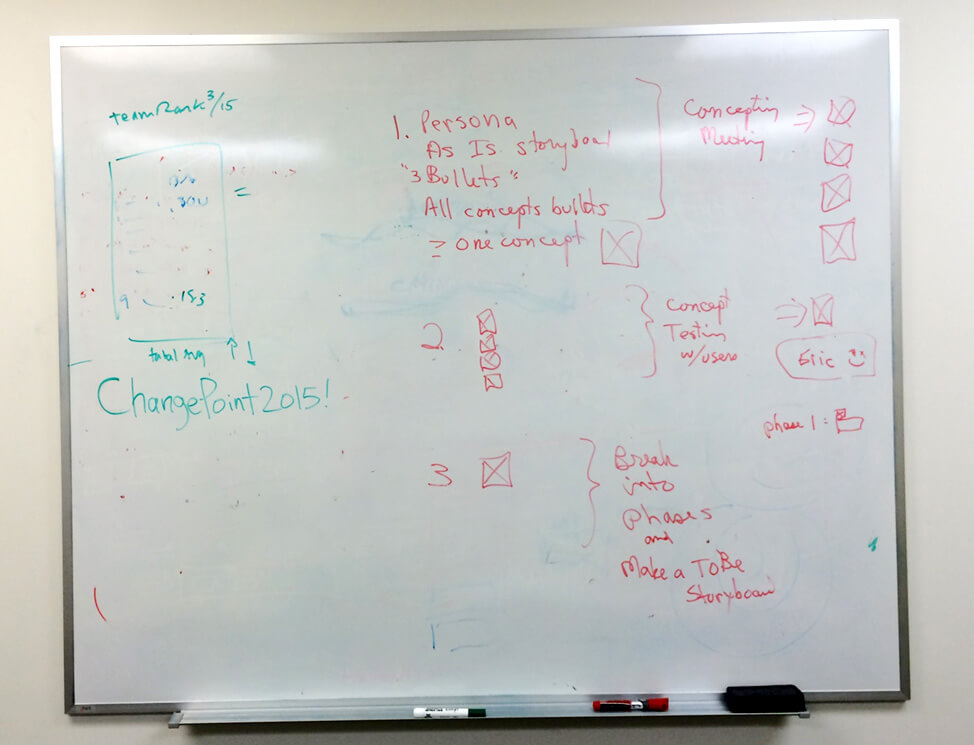 teamRank 3/15
300
=
9 .153
total avg
ChangePoint2015!
1. Persona
As Is storyboard
"3 Bullets"
All concepts bullets
≥ one concept
Concepting
Meeting
⇒
2
Concept
Testing
w/users
⇒
Eric
phase 1:
3
Break
into
phases
and
Make a ToBe
Storyboard